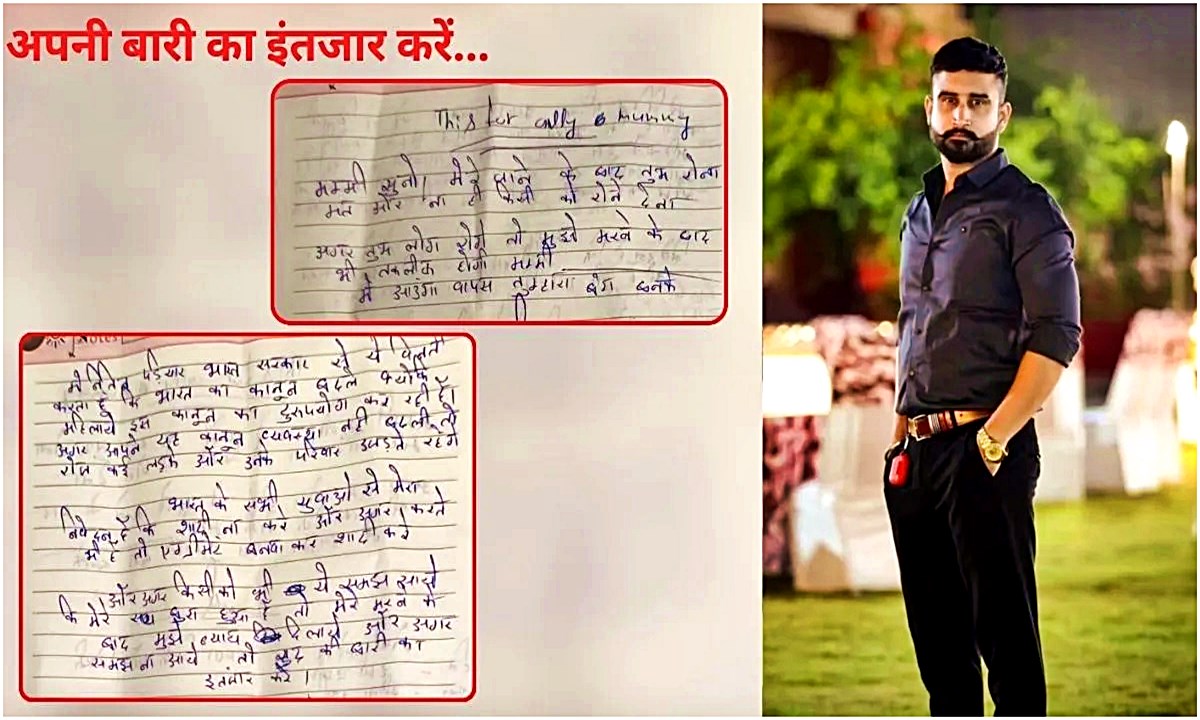 अपनी बारी का इंतजार करें...
This for only mummy
मम्मी सुनो। मेरे जाने के बाद तुम रोना
मत और ना ही किसी को रोने देना
अगर तुम लोग रोये तो मुझे मरने के बाद
भी तकलीफ होगी मम्मी
में आउंगा वापस तुम्हारा बनके
NOTES
में नितिन पडियार भारत सरकार से ये विनती
करता हूं कि भारत का कानून बदले क्योंकि
महिलाये इस कानून का दुरुपयोग कर रही हैं।
अगर आपने यह कानून व्यवस्था नही बदली तो
रोज कई लड़के और उनके परिवार उजड़ते रहेंगे
भारत के सभी युवाओ से मेरा
निवेदन हैं कि शादी ना करे और अगर करते
भी हैं तो एग्रीमेंट बनवा कर शादी करे
और अगर किसी को भी ये समझ आये
कि मेरे साथ बुरा हुआ है तो मेरे मरने के
बाद मुझे न्याय दिलाये और अगर
समझ ना आये तो खुद की बारी का
इंतजार करे।